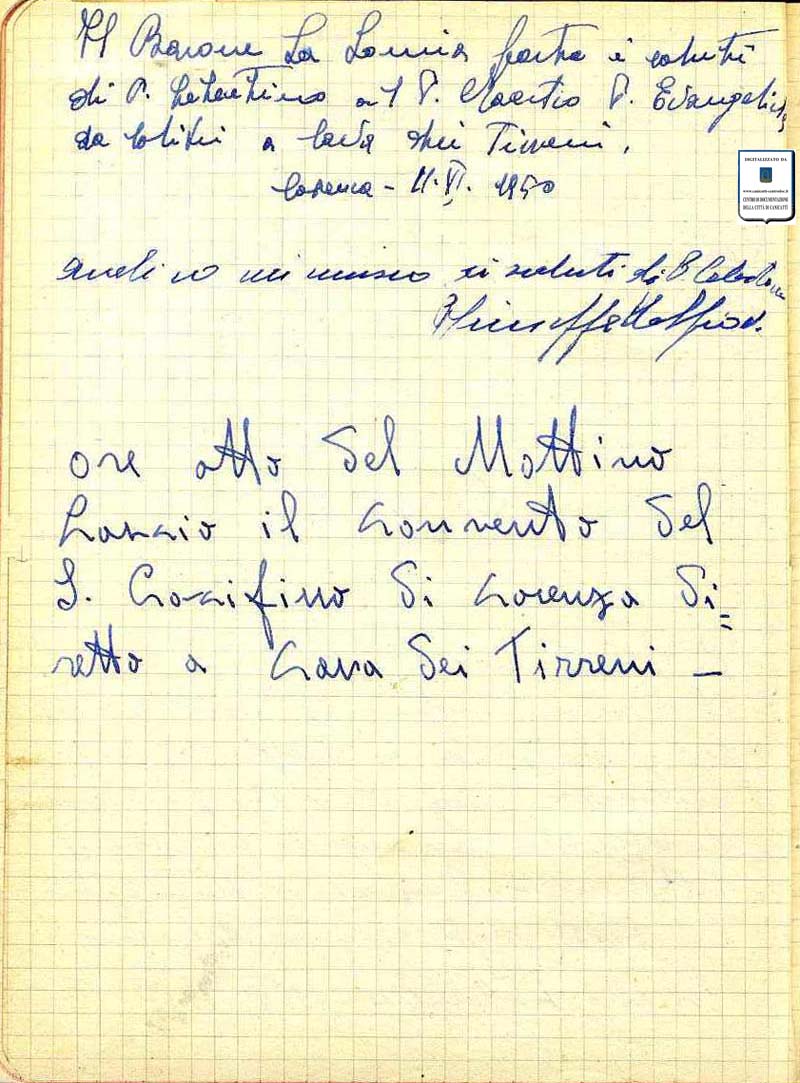 Il Barone La Lomia porta i saluti
di P. al P. Maestro P. Evangelista
da a Cava dei Tirreni.
Cosenza - 11. VI. 1950
anch'io mi unisco ai saluti di P.
ore otto del Mattino
Lascio il convento del
S. Crocifisso di Cosenza di=
retto a Cava dei Tirreni -
DIGITALIZZATO DA
www.canicatti-centrodoc.it
CENTRO DI DOCUMENTAZIONE
DELLA CITTÀ DI CANICATTÌ